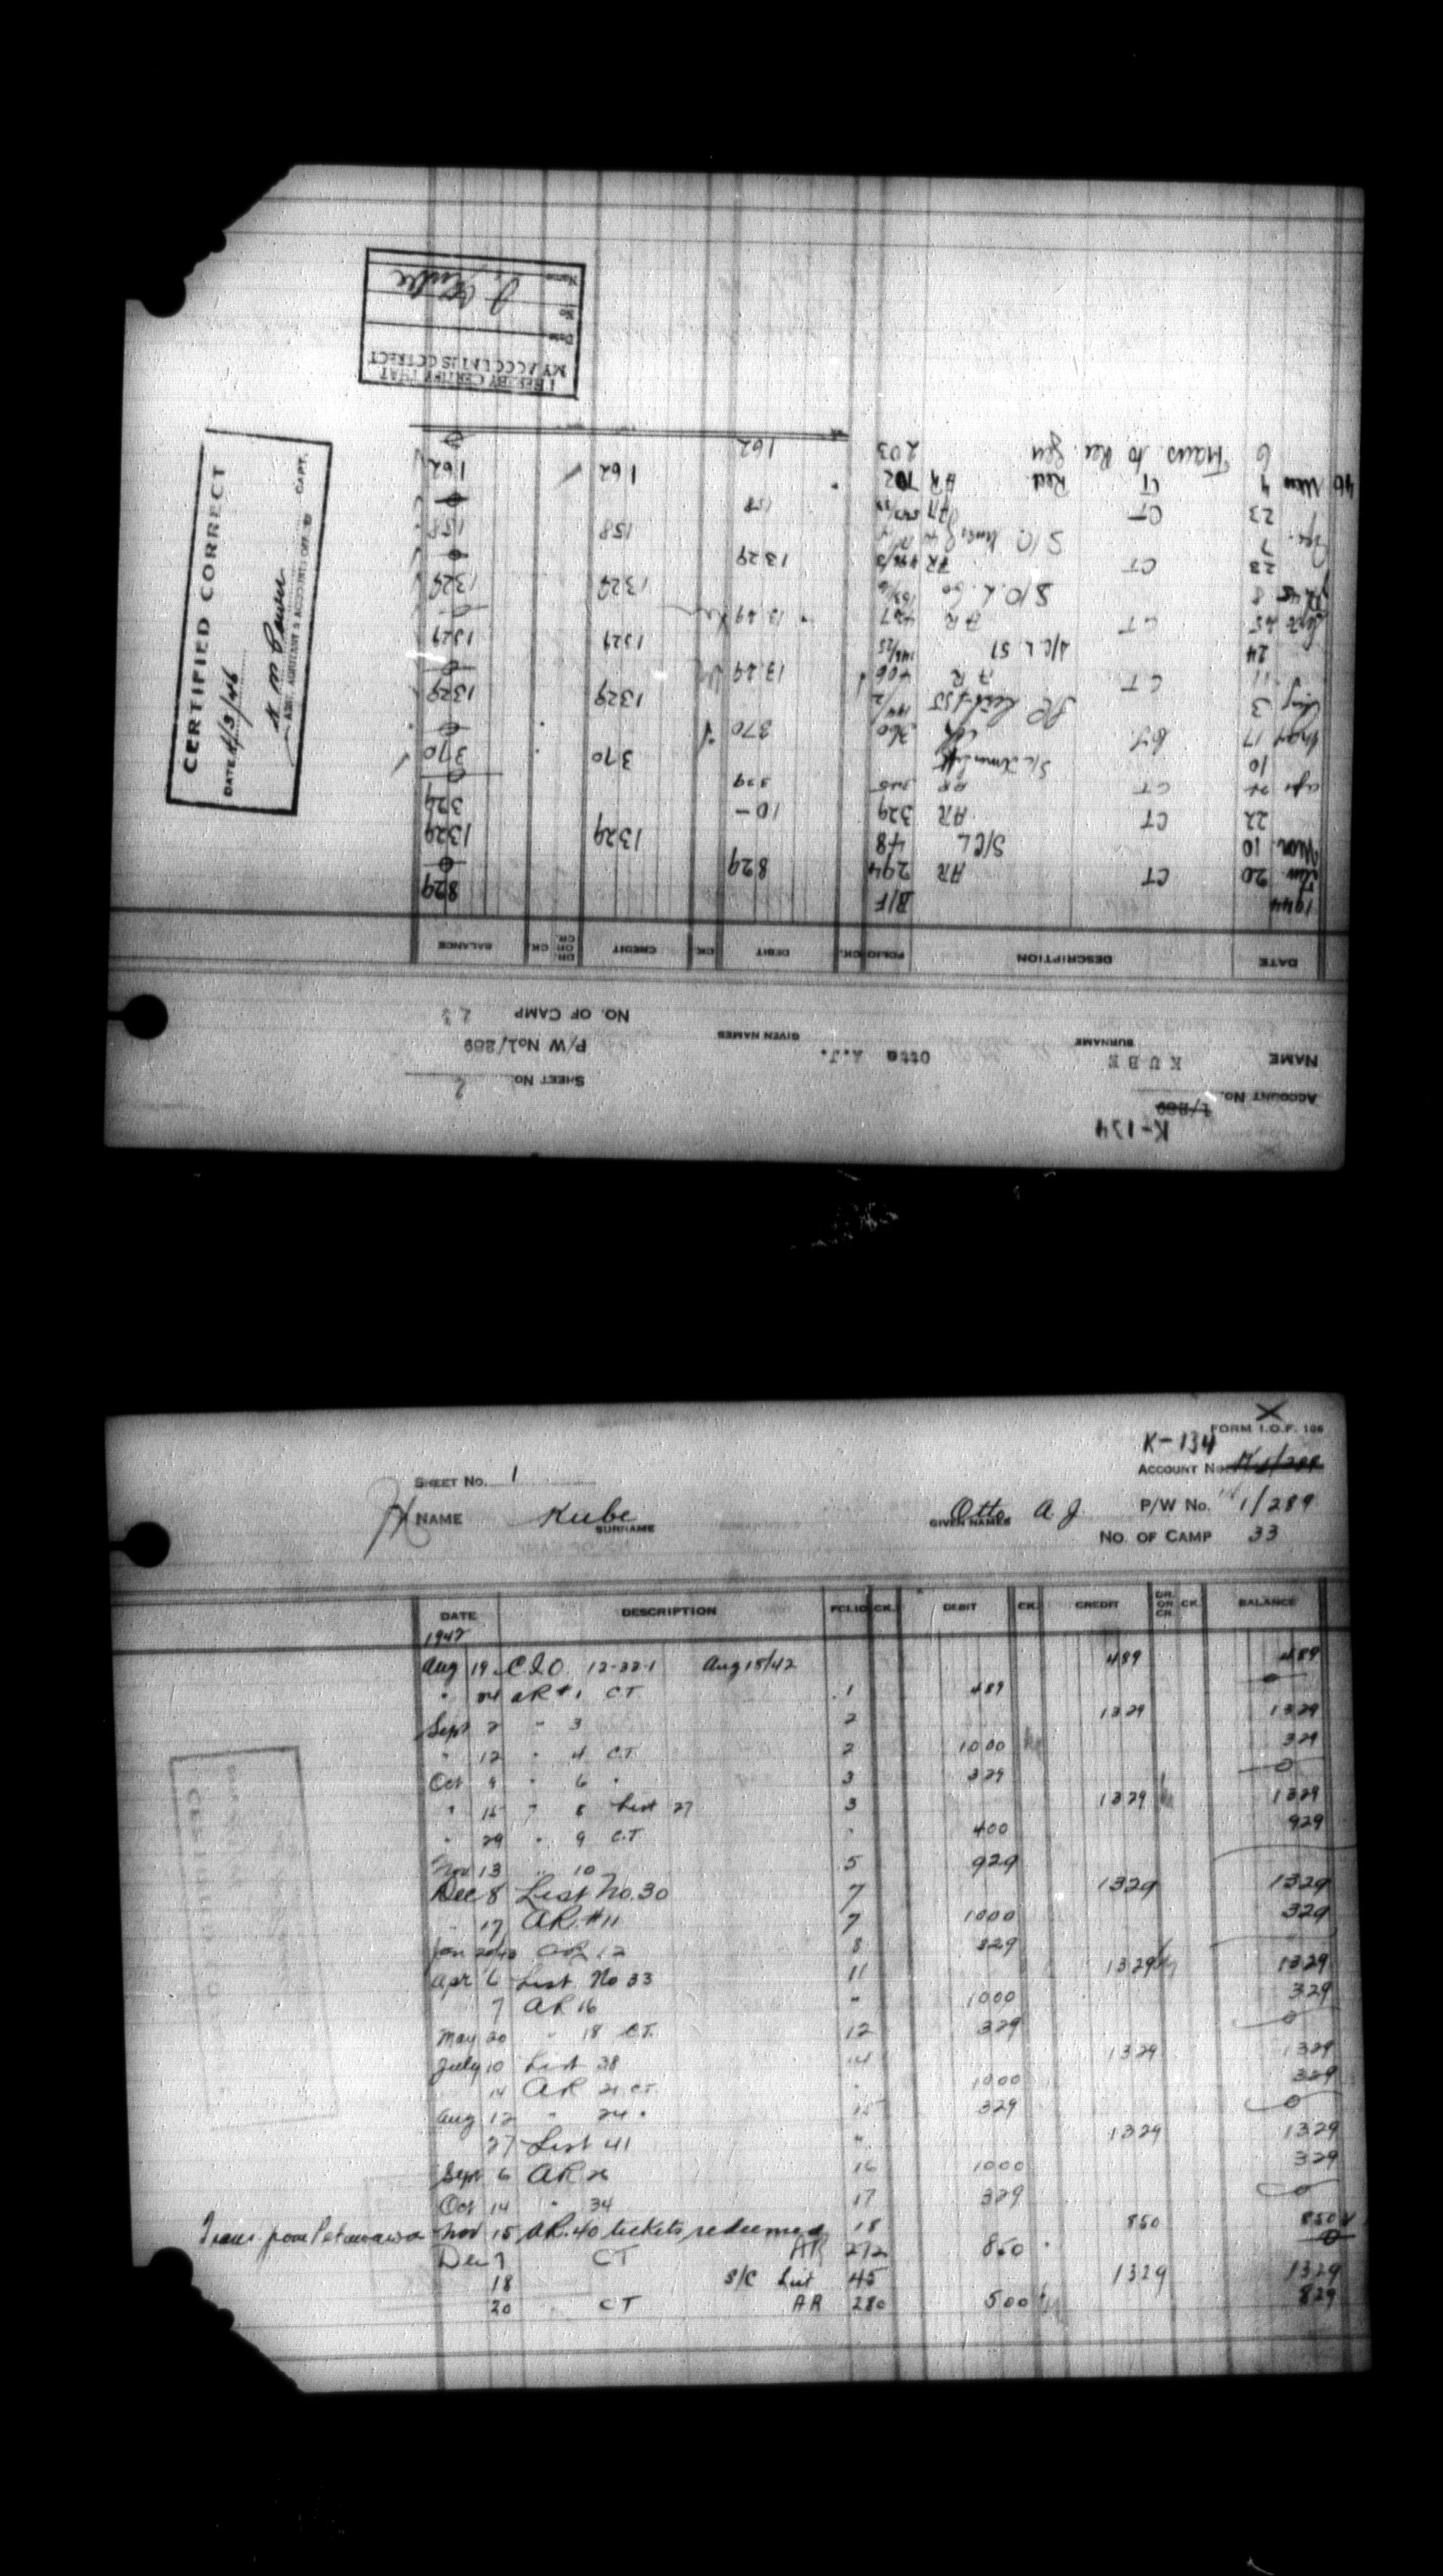 X
FORM I.O.F. 106
K-134
SHEET No. 1
ACCOUNT No.
NAME Kube Otto A. J. P/W No. 1/289
SURNAME GIVEN NAMES
No. OF CAMP 33
DATE DESCRIPTION FOLIO CK. DEBIT CK. CREDIT DR. OR CR. CK. BALANCE
1942
Aug 19 C&O 12-22-1 Aug 18/42 489 489
" 24 AR #1 CT 1 489 0
Sept 2 " 3 2 1329 1329
" 12 " 4 CT 2 1000 329
Oct 9 " 6 " 3 329 0
" 15 " 8 List 27 3 1329 1329
" 29 " 9 C.T. " 400 929
Nov 13 " 10 5 929
Dec 8 List No. 30 7 1329 1329
" 17 AR #11 7 1000 329
Jan 12 8 329
Apr 6 List No 33 11 1329 1329
7 AR 16 " 1000 329
May 20 " 18 CT. 12 329 0
July 10 List 38 14 1329 1329
14 AR 21 CT. " 1000 329
Aug 12 " 24 " 15 329 0
27 List 41 " 1329 1329
Sept 6 AR 26 16 1000 329
Oct 14 " 34 17 329 0
Trans. from Petawawa Nov 15 AR. 40 tickets redeemed 18 850 850
Dec 7 CT AR 272 850 0
18 S/C List 45 1329 1329
20 CT AR 280 500 829
K-134
ACCOUNT No. 1/289
SHEET No. 2
NAME KUBE Otto A.J. P/W No. 1/289
SURNAME GIVEN NAMES
NO. OF CAMP 23
DATE DESCRIPTION FOLIO CK. DEBIT CK. CREDIT DR. OR CR. CK. BALANCE
1944 B/F 829
Jan 20 CT AR 294 829 0
Mar 10 S/C L 48 1329 1329
22 CT AR 329 10- 329
Apr CT AR 329 0
10 370 370
May 17 360 370 0
Aug 3 1329 1329
11 CT AR 406 13.29 0
24 S/C L 51 1329 1329
Sept 25 CT AR 427 13.29 0
8 S/C L. 60 1329 1329
23 CT AR 1329 0
Dec. 7 S/C 158 158
23 CT AR 158 0
46 Mar 4 CT Red AR 702 162 162
6 Trans to Rec. Gen 203 162 0
I HEREBY CERTIFY THAT
MY ACCOUNT IS CORRECT
Date
No
Name O Kube
CERTIFIED CORRECT
DATE 4/3/46
CAPT.
ASST. ADJUTANT & ACCOUNTS OFFICER